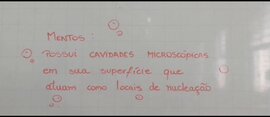 MENTOS:
POSSUI CAVIDADES MICROSCÓPICAS
em sua superfície que
atuam como locais de nucleação